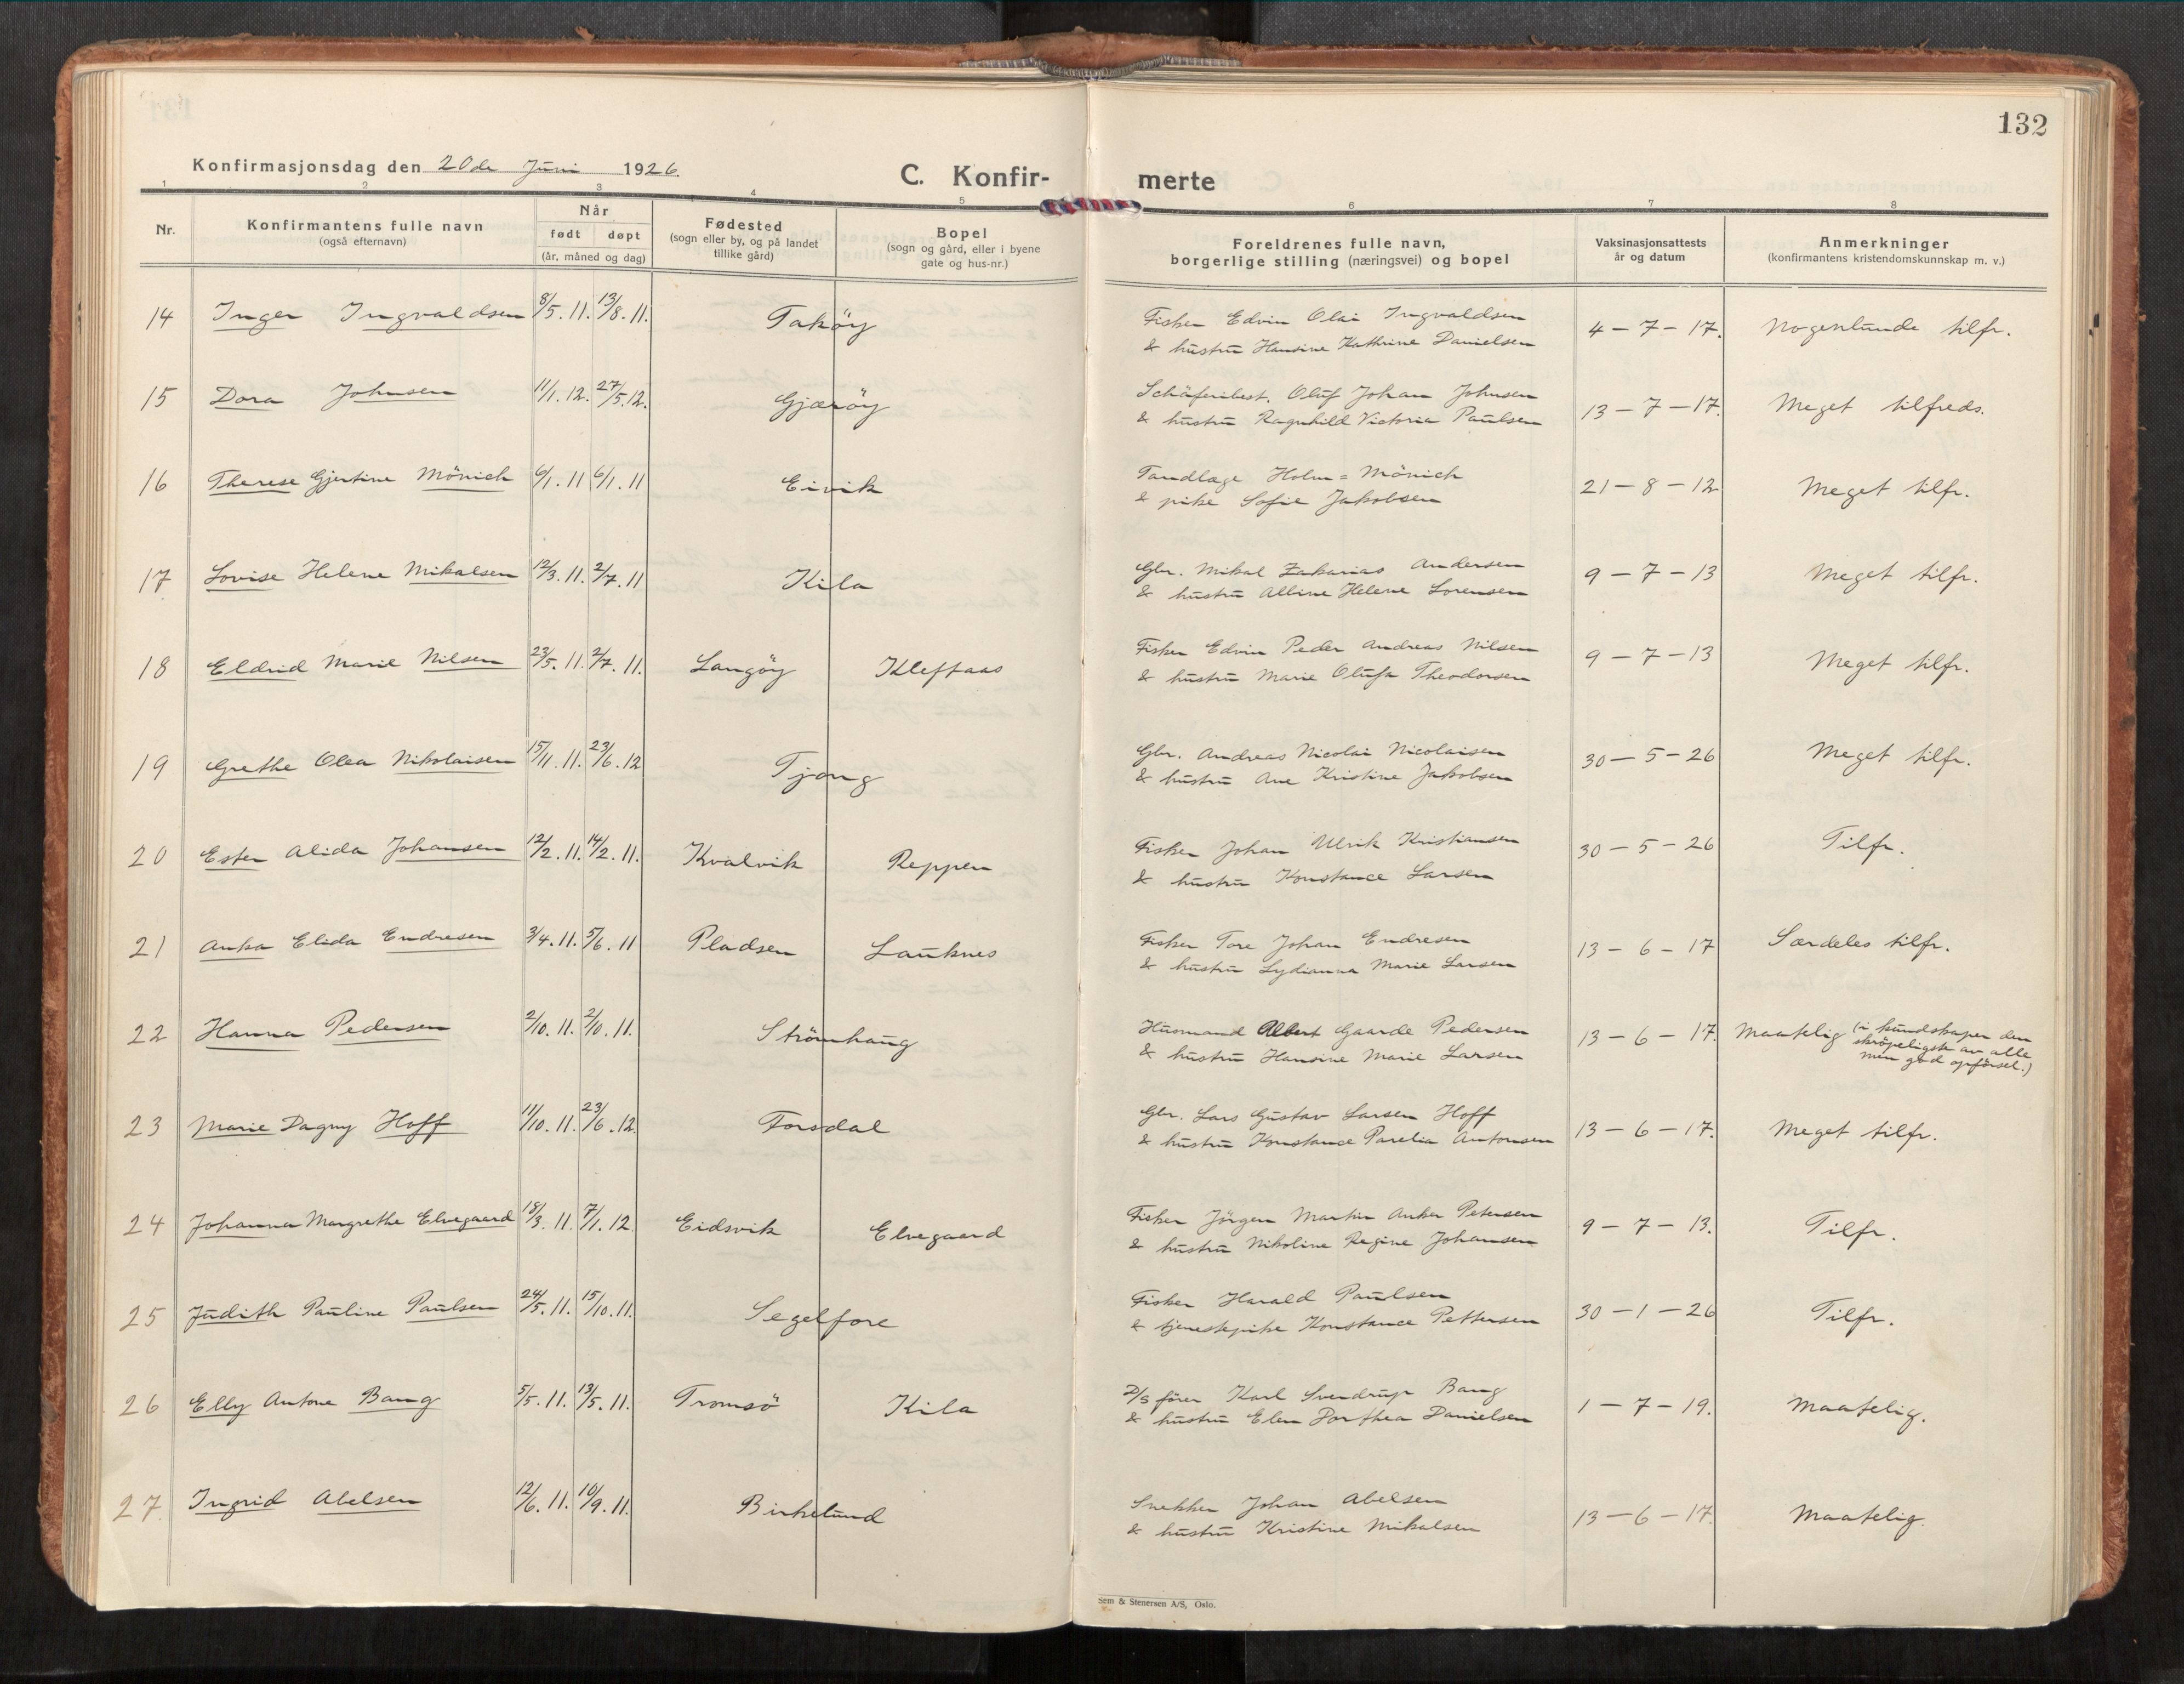 132
Konfirmasjonsdag den 20de Juni 1926.
C. Konfir-
merte
1 2 3 4 5 6 7 8
Nr.
Konfirmantens fulle navn
(også efternavn)
Når
født døpt
(år, måned og dag)
Fødested
(sogn eller by, og på landet
tillike gård)
Bopel
(sogn og gård, eller i byene
gate og hus-nr.)
Foreldrenes fulle navn,
borgerlige stilling (næringsvei) og bopel
Vaksinasjonsattests
år og datum
Anmerkninger
(konfirmantens kristendomskunnskap m. v.)
14 Inger Ingvaldsen 8/5. 11. 13/8. 11. Taköy
Fisker Edvin Olai Ingvaldsen
& hustru Hansine Kathrine Danielsen
4 - 7 - 17. Nogenlunde tilfr.
15 Dora Johnsen 11/1. 12. 27/5. 12. Gjæröy
Schäferibest. Oluf Johan Johnsen
& hustru Ragnhild Victoria Paulsen
13 - 7 - 17. Meget tilfreds.
16 Therese Gjertine Mönich 6/1. 11 6/1. 11 Eivik
Tandlæge Holm = Mönich
& pike Sofie Jakobsen
21 - 8 - 12 Meget tilfr.
17 Lovise Helene Mikalsen 12/3. 11. 2/7. 11 Kila
Gbr. Mikal Zakarias Andersen
& hustru Albine Helene Lorensen
9 - 7 - 13 Meget tilfr.
18 Eldrid Marie Nilsen 23/5. 11. 2/7. 11. Langöy Kleppaas
Fisker Edvin Peder Andreas Nilsen
& hustru Marie Olufa Theodorsen
9 - 7 - 13 Meget tilfr.
19 Grethe Olea Nikolaisen 15/11. 11. 23/6. 12 Tjong
Gbr. Andreas Nicolai Nicolaisen
& hustru Ane Kristine Jakobsen
30 - 5 - 26 Meget tilfr.
20 Ester Alida Johansen 12/2. 11. 14/2. 11. Kvalvik Reppen
Fisker Johan Ulrik Kristiansen
& hustru Konstance Larsen
30 - 5 - 26 Tilfr.
21 Anka Elida Endresen 3/4. 11. 5/6. 11 Pladsen Lauknes
Fisker Tore Johan Endresen
& hustru Lydianna Marie Larsen
13 - 6 - 17 Særdeles tilfr.
22 Hanna Pedersen 2/10. 11. 2/10. 11. Strömhaug
Husmand Albert Gaarde Pedersen
& hustru Hansine Marie Larsen
13 - 6 - 17. Maatelig (i kundskaper den
skröpeligste av alle
men god opförsel.)
23 Marie Dagny Hoff 11/10. 11. 23/6. 12. Forsdal
Gbr. Lars Gustav Larsen Hoff
& hustru Konstance Parelia Antonsen
13 - 6 - 17. Meget tilfr.
24 Johanna Margrethe Elvegaard 18/3. 11. 7/1. 12 Eidsvik Elvegaard
Fisker Jörgen Martin Anker Petersen
& hustru Nikoline Regine Johansen
9 - 7 - 13. Tilfr.
25 Judith Pauline Paulsen 24/5. 11. 15/10. 11. Segelfore
Fisker Harald Paulsen
& tjenestepike Konstance Pettersen
30 - 1 - 26 Tilfr.
26 Elly Antone Bang 5/5. 11. 13/5. 11. Tromsö Kila
D/S förer Karl Sverdrup Bang
& hustru Elen Dorthea Danielsen
1 - 7 - 19. Maatelig.
27. Ingrid Abelsen 12/6. 11. 10/9. 11. Birkelund
Snekker Johan Abelsen
& hustru Kristine Mikalsen
13 - 6 - 17. Maatelig.
Sem & Stenersen A/S, Oslo.